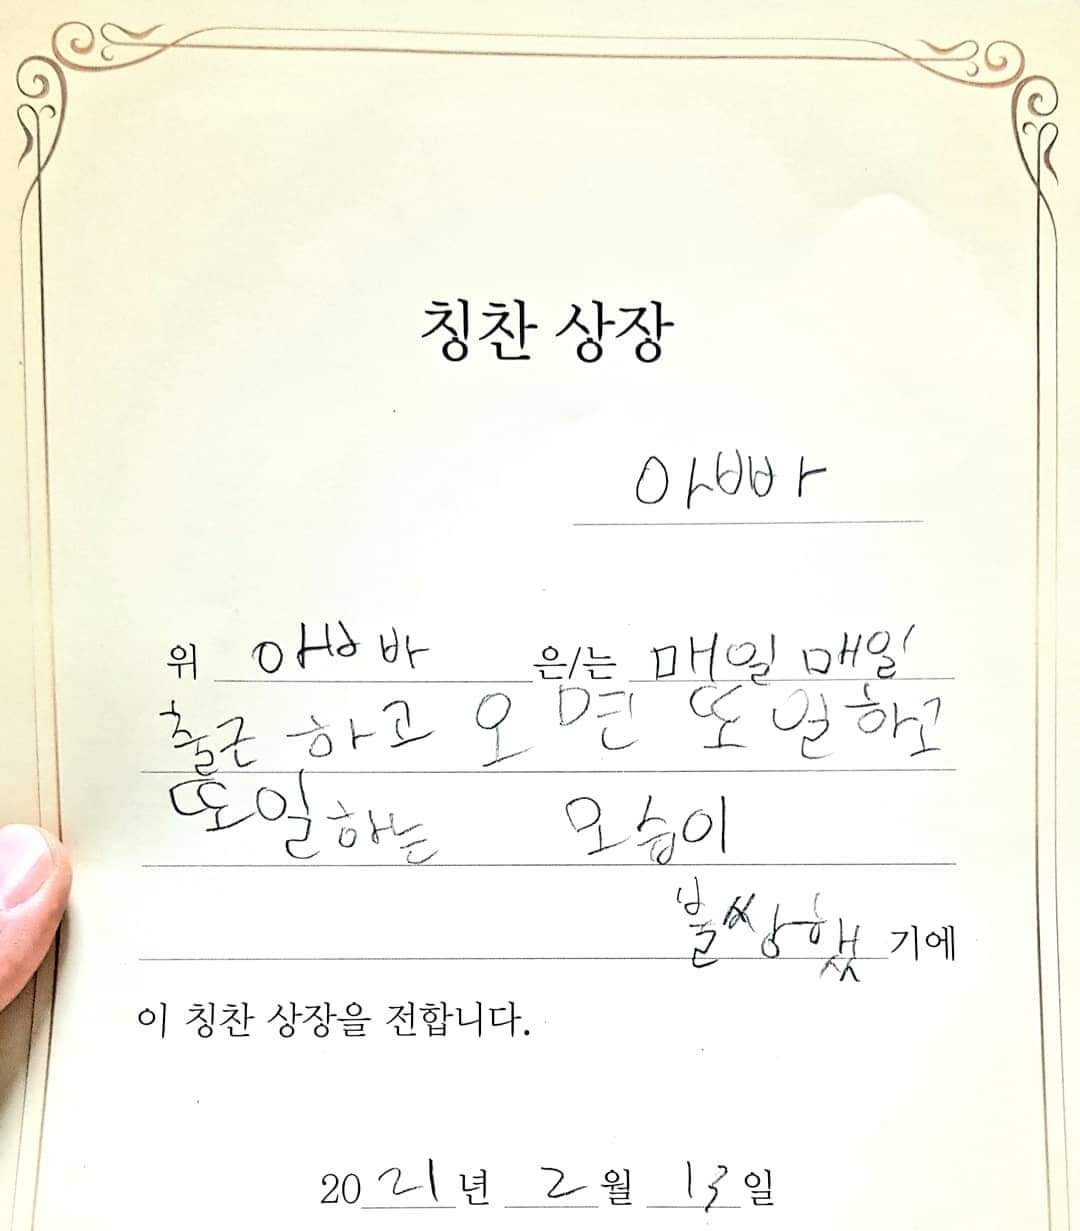 칭찬 상장
아빠
위 아빠 은/는 매일 매일
출근 하고 오면 또 일하고
또 일하는 모습이
불쌍했 기에
이 칭찬 상장을 전합니다.
2021년 2월 13일